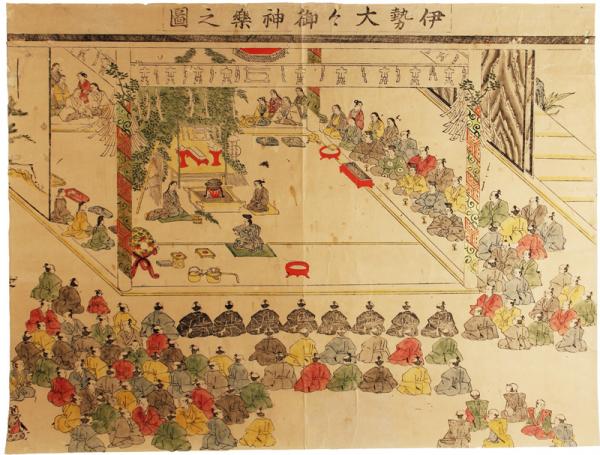 伊勢大々御神樂之圖